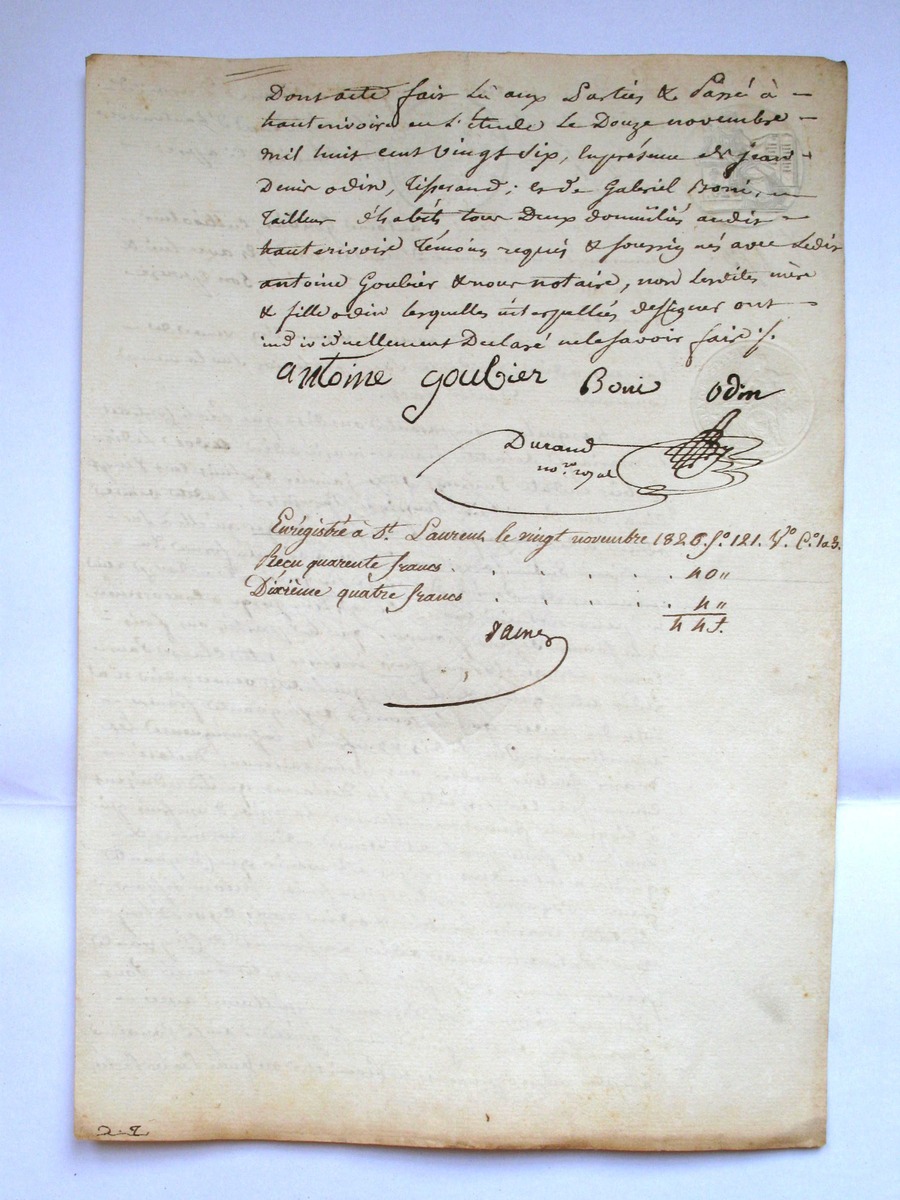 Dont acte fait Lù aux Parties & Passé à
hauterivoire en L'étude Le Douze novembre
mil huit cent Vingt Six, En présence de jean
Denis odin, Tisserand; et de Gabriel Boni,
Tailleur d'habits tous Deux domiciliés audit
hauterivoire Témoins requis & soussignés avec Ledit
antoine Goubier & nous notaire, non Lesdites mère
& fille odin lesquelles interpellées de signer ont
individuellement Declaré ne le savoir faire /.
antoine goubier Boni odin
Durand
no.re royal
Enrégistré à St. Laurent le vingt novembre 1826. fo. 121. Vo. C.o 1 a 3.
Reçu quarente francs . . . . . 40 "
Dixième quatre francs . . . . . 4 "
44 f.